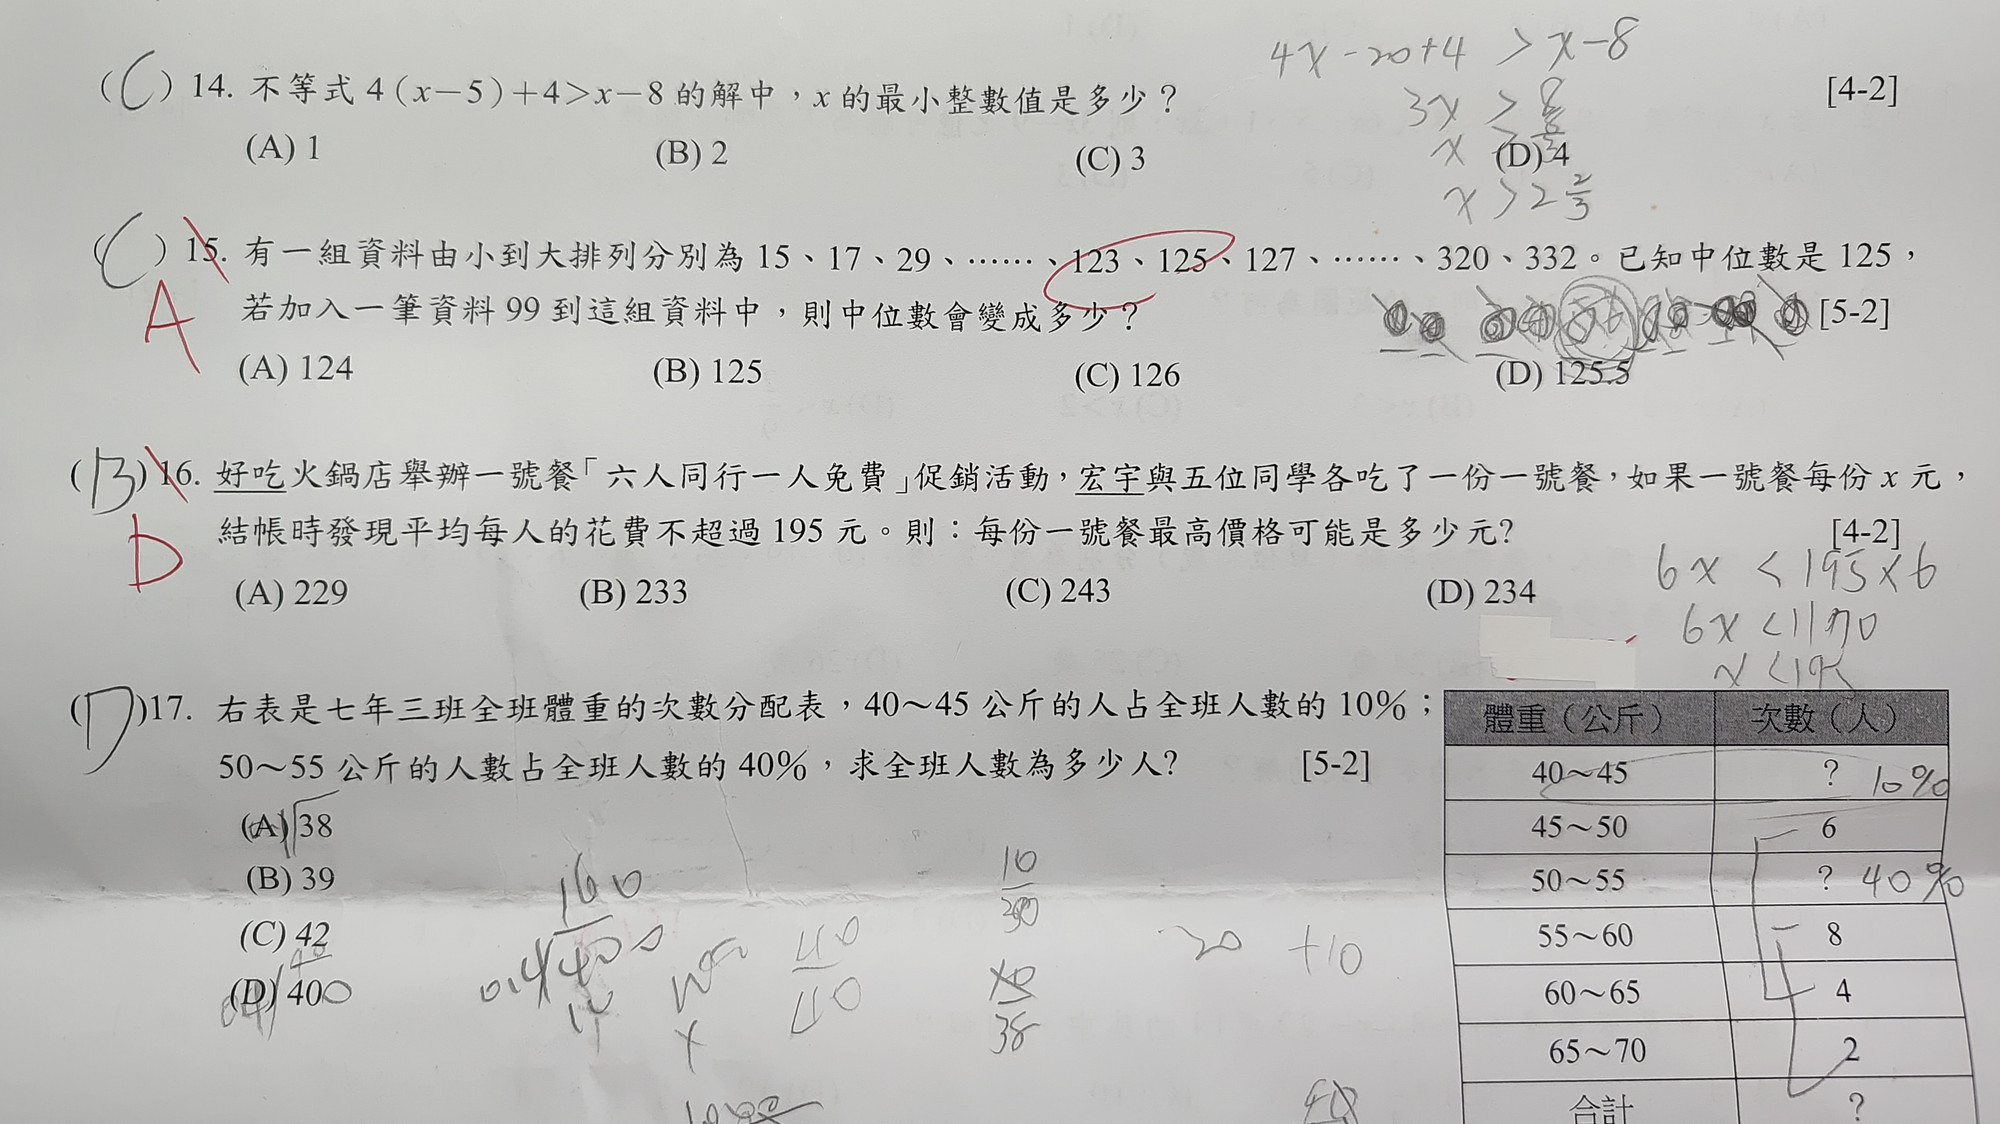 4x-20+4 > x-8
(C) 14. 不等式 4(x-5)+4>x-8 的解中，x 的最小整數值是多少？ [4-2]
3x > 8
(A) 1 (B) 2 (C) 3 (D) 4
x > 2 2/3
(C) 15. 有一組資料由小到大排列分別為 15、17、29、……、123、125、127、……、320、332。已知中位數是 125，
A
若加入一筆資料 99 到這組資料中，則中位數會變成多少？ [5-2]
(A) 124 (B) 125 (C) 126 (D) 125.5
(B) 16. 好吃火鍋店舉辦一號餐「六人同行一人免費」促銷活動，宏宇與五位同學各吃了一份一號餐，如果一號餐每份 x 元，
D
結帳時發現平均每人的花費不超過 195 元。則：每份一號餐最高價格可能是多少元? [4-2]
6x < 195×6
(A) 229 (B) 233 (C) 243 (D) 234
6x < 1170
x < 195
(D) 17. 右表是七年三班全班體重的次數分配表，40～45 公斤的人占全班人數的 10%；
50～55 公斤的人數占全班人數的 40%，求全班人數為多少人? [5-2]
(A) 38
(B) 39
(C) 42
(D) 40
體重（公斤） 次數（人）
40～45 ? 10%
45～50 6
50～55 ? 40%
55～60 8
60～65 4
65～70 2
合計 ?
160
10
20 +10
38